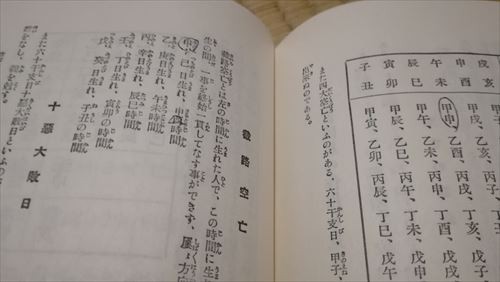 戌亥
申酉
午未
辰巳
寅卯
子丑
甲子、乙丑、
甲戌、乙亥、丙子、
甲申、乙酉、丙戌、丁亥、戊子
甲午、乙未、丙申、丁酉、戊戌
甲辰、乙巳、丙午、丁未、戊申
甲寅、乙卯、丙辰、丁巳、戊午
また四大空亡といふのがある、六十干支日、甲子、
出来ぬのである。
截路空亡
截路空亡とは左の時間に生れた人で、この時間に生
生の間、一事を終始一貫してなす事ができず、屡〻方向
甲、己日生れ、申酉時間
乙、庚日生れ、午未時間
丙、辛日生れ、辰巳時間
丁、壬日生れ、寅卯の時間
戊、癸日生れ、子丑の時間
十惡大敗日
また六十干支日十惡大敗日といふの